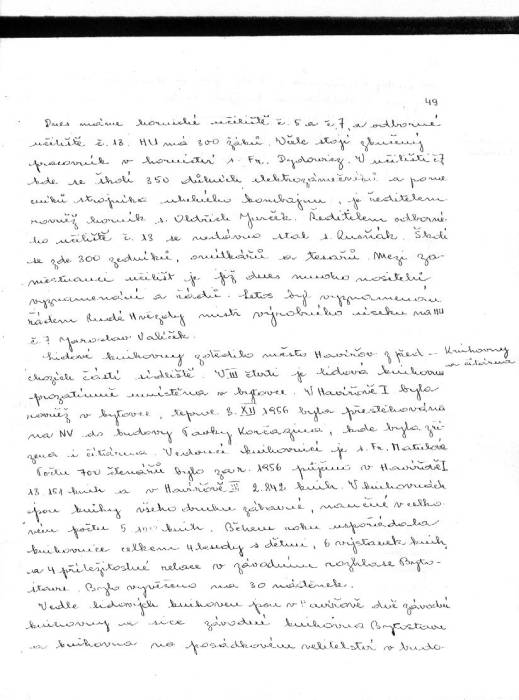 49
Dnes máme hornické učiliště č. 5 a č. 7, a odborné
učiliště č. 13. HU má 300 žáků. V čele stojí zkušený
pracovník v hornictví s. Fr. Dydowicz. V učilišti č. 7
kde se školí 350 důlních elektrozámečníků a pomo
cníků strojníka uhelného kombajnu, je ředitelem
rovněž horník s. Oldřich Jurček. Ředitelem odborné-
ho učiliště č. 13 se nedávno stal s. Rusňák. Školí
se zde 300 zedníků, omítkářů a tesařů. Mezi za
městnanci učilišť je již dnes mnoho nositelů
vyznamenání a řádů. Letos byl vyznamenán
řádem Rudé Hvězdy mistr výrobního úseku na HU
č. 7 Jaroslav Valíček.
Lidové knihovny zdědilo město Havířov z před-
chozích částí sídliště. V III čtvrti je lidová knihovna
prozatímně umístěna v bytovce. V Havířově I byla
rovněž v bytovce, teprve 8. XII 1956 byla přestěhována
na NV do budovy Pavky Korčagina, kde byla zří
zena i čítárna. Vedoucí knihovnicí je s. Fr. Matulová
Počtu 700 čtenářů bylo za r. 1956 půjčeno v Havířově I
13 151 knih a v Havířově III 2.842 knih. V knihovnách
jsou knihy všeho druhu zábavné, naučné v celko
vém počtu 5 knih. Během roku uspořádala
knihovnice celkem 4 besedy s dětmi, 6 výstavek knih
a 4 příležitostné relace v závodním rozhlase Byto-
stavu. Bylo vyvěšeno na 30 nástěnek.
Vedle lidových knihoven jsou v Havířově dvě závodní
knihovny a sice závodní knihovna Bytostavu
a knihovna na posádkovém velitelství v budo
Knihovny
a čítárna